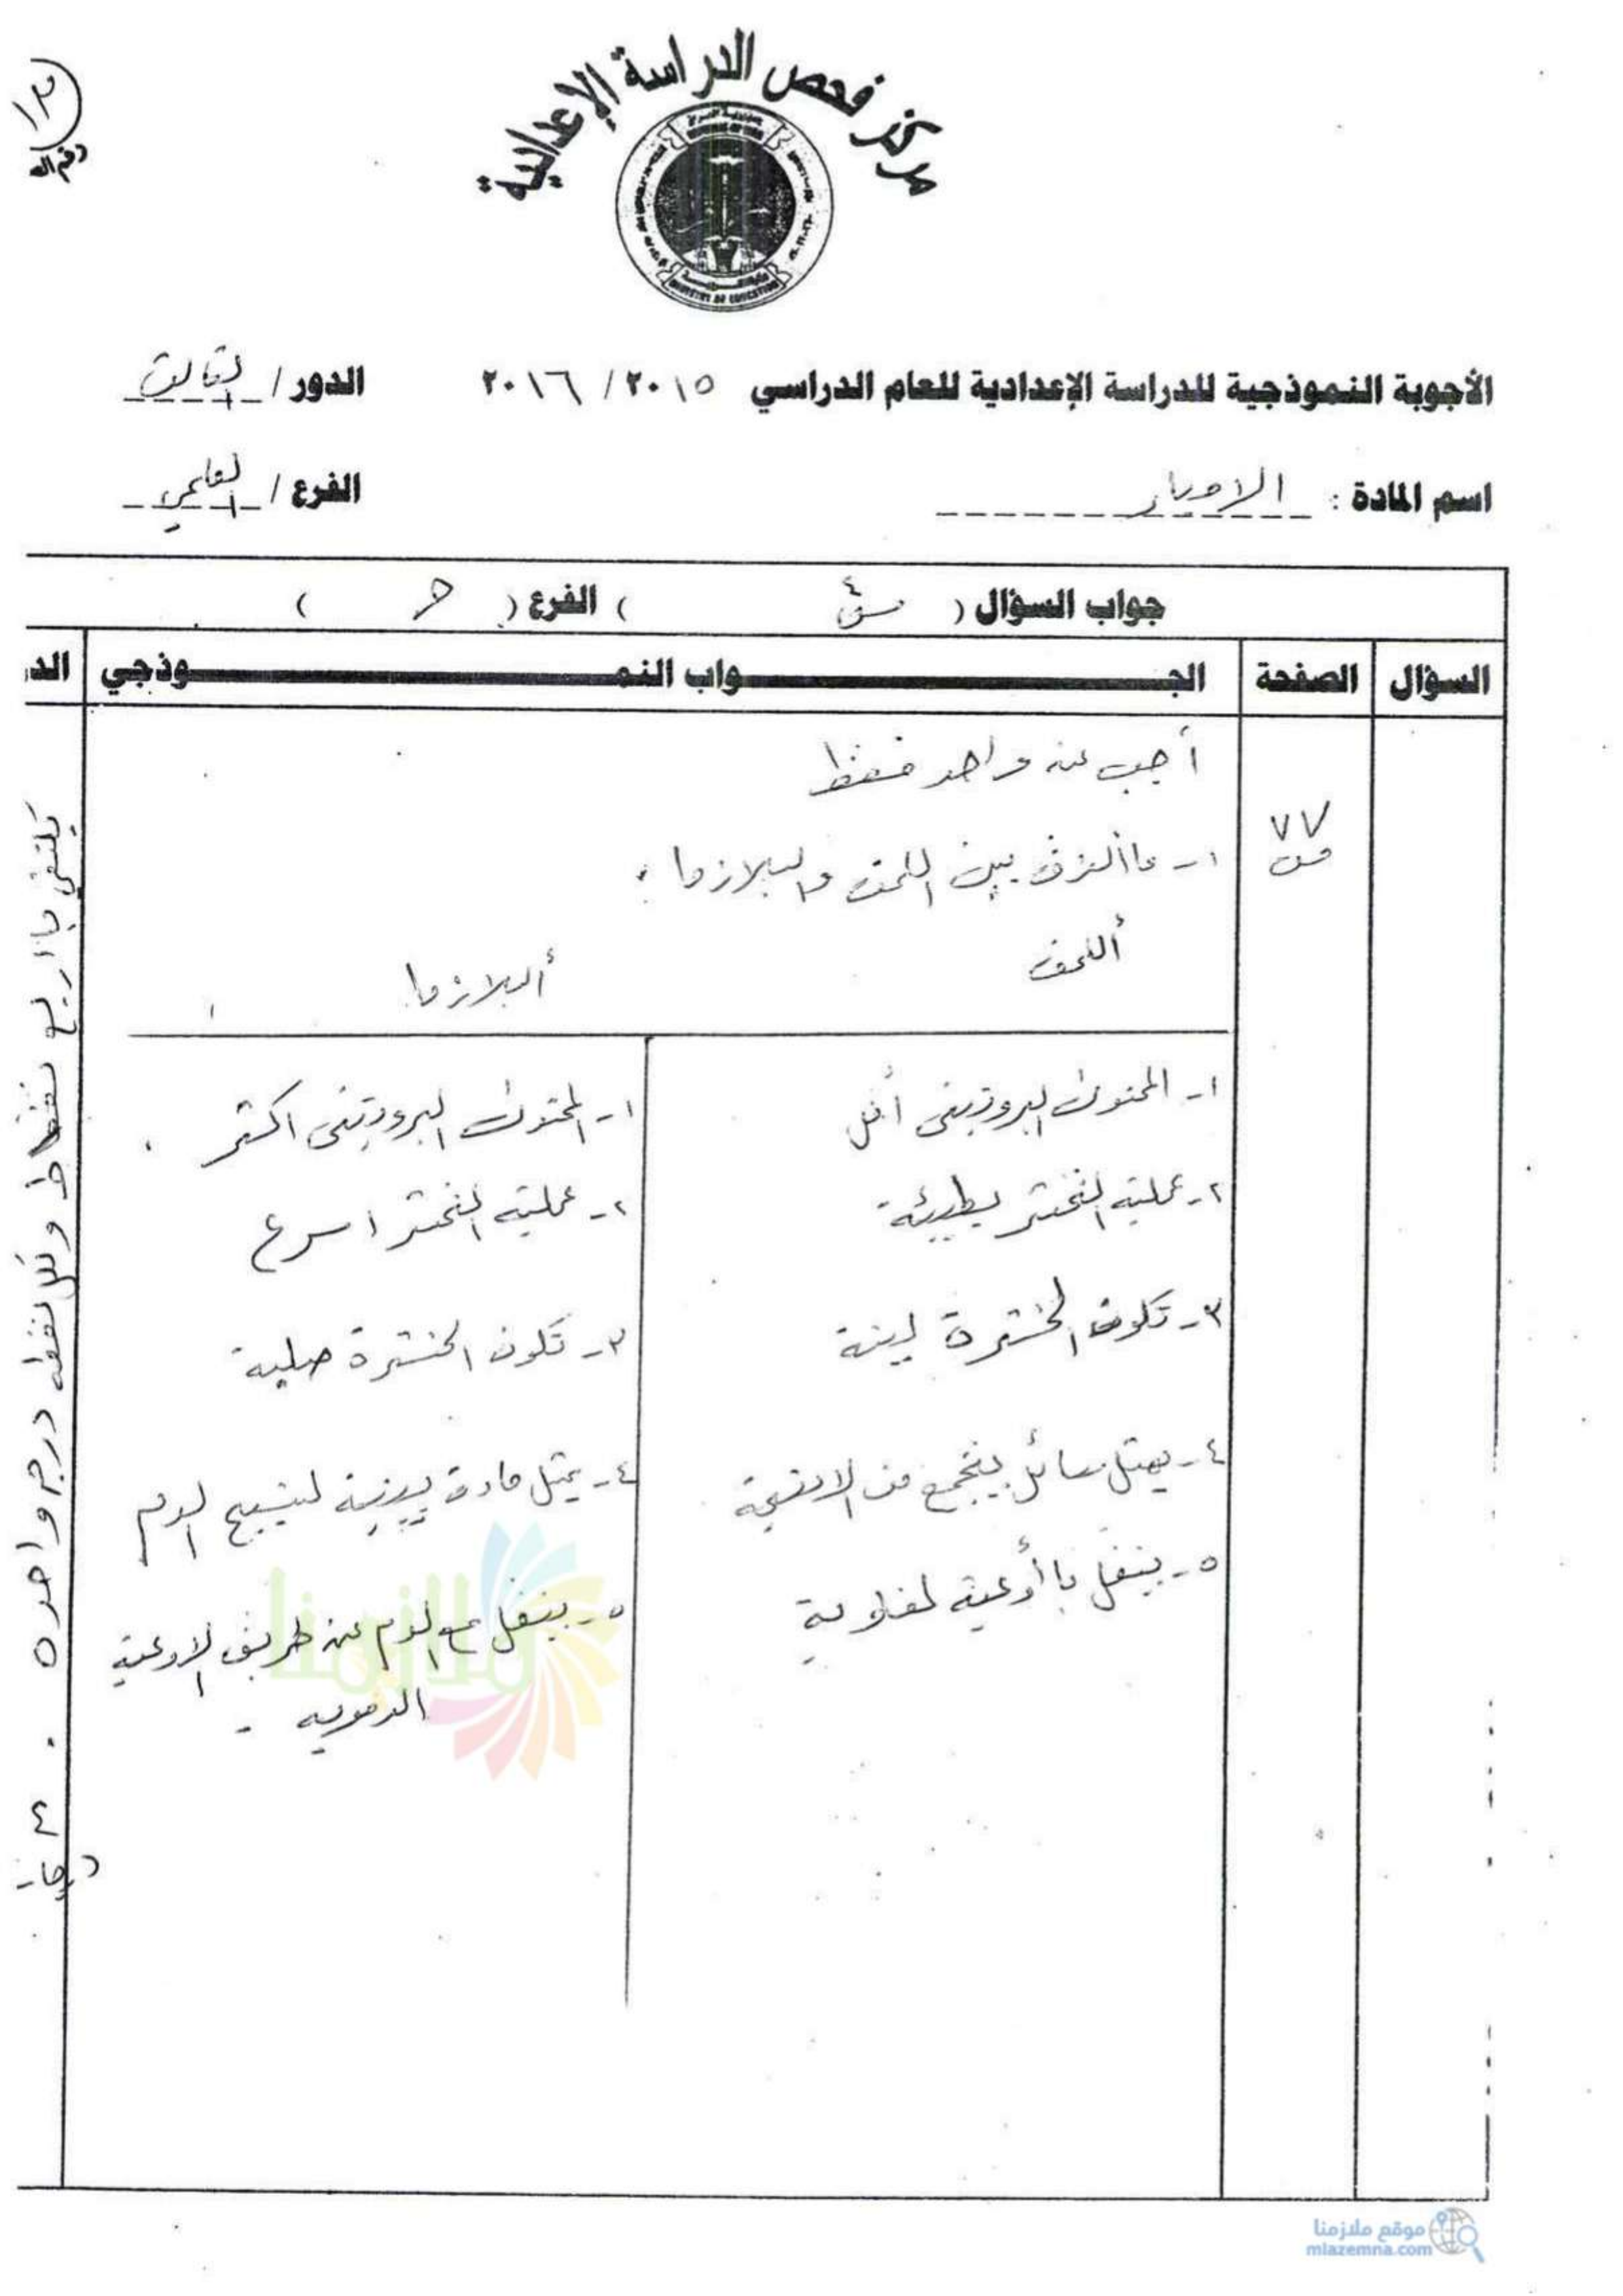 مركز فحص الدراسة الإعدادية
MINISTRY OF EDUCATION
الأجوبة النموذجية للدراسة الإعدادية للعام الدراسي ٢٠١٥ / ٢٠١٦ الدور / الثالث
اسم المادة : الاحياء الفرع / العلمي
جواب السؤال ( س٤ ) الفرع ( هـ )
السؤال الصفحة الجـــواب النمـــوذجي الد
أجب عن واحد فقط
ص ٧٧
١- ما الفرق بين اللمف والبلازما :
أللمف
ألبلازما
١- المحتوى البروتيني أقل
١- المحتوى البروتيني اكثر .
٢- عملية التخثر بطيئة
٢- عملية التخثر اسرع
٣- تكون الخثرة لينة
٣- تكون الخثرة صلبة
٤- يمثل سائل يتجمع من الانسجة
٤- يمثل مادة بينية لنسيج الدم
٥- ينقل بأأوعية لمفاوية
٥- ينقل مع الدم عن طريق الاوعية
الدمويه -
يكتفي باربع نقاط ولكل نقطه درجه واحده .
٤ درجات
ملازمنا
موقع ملازمنا
mlazemna.com